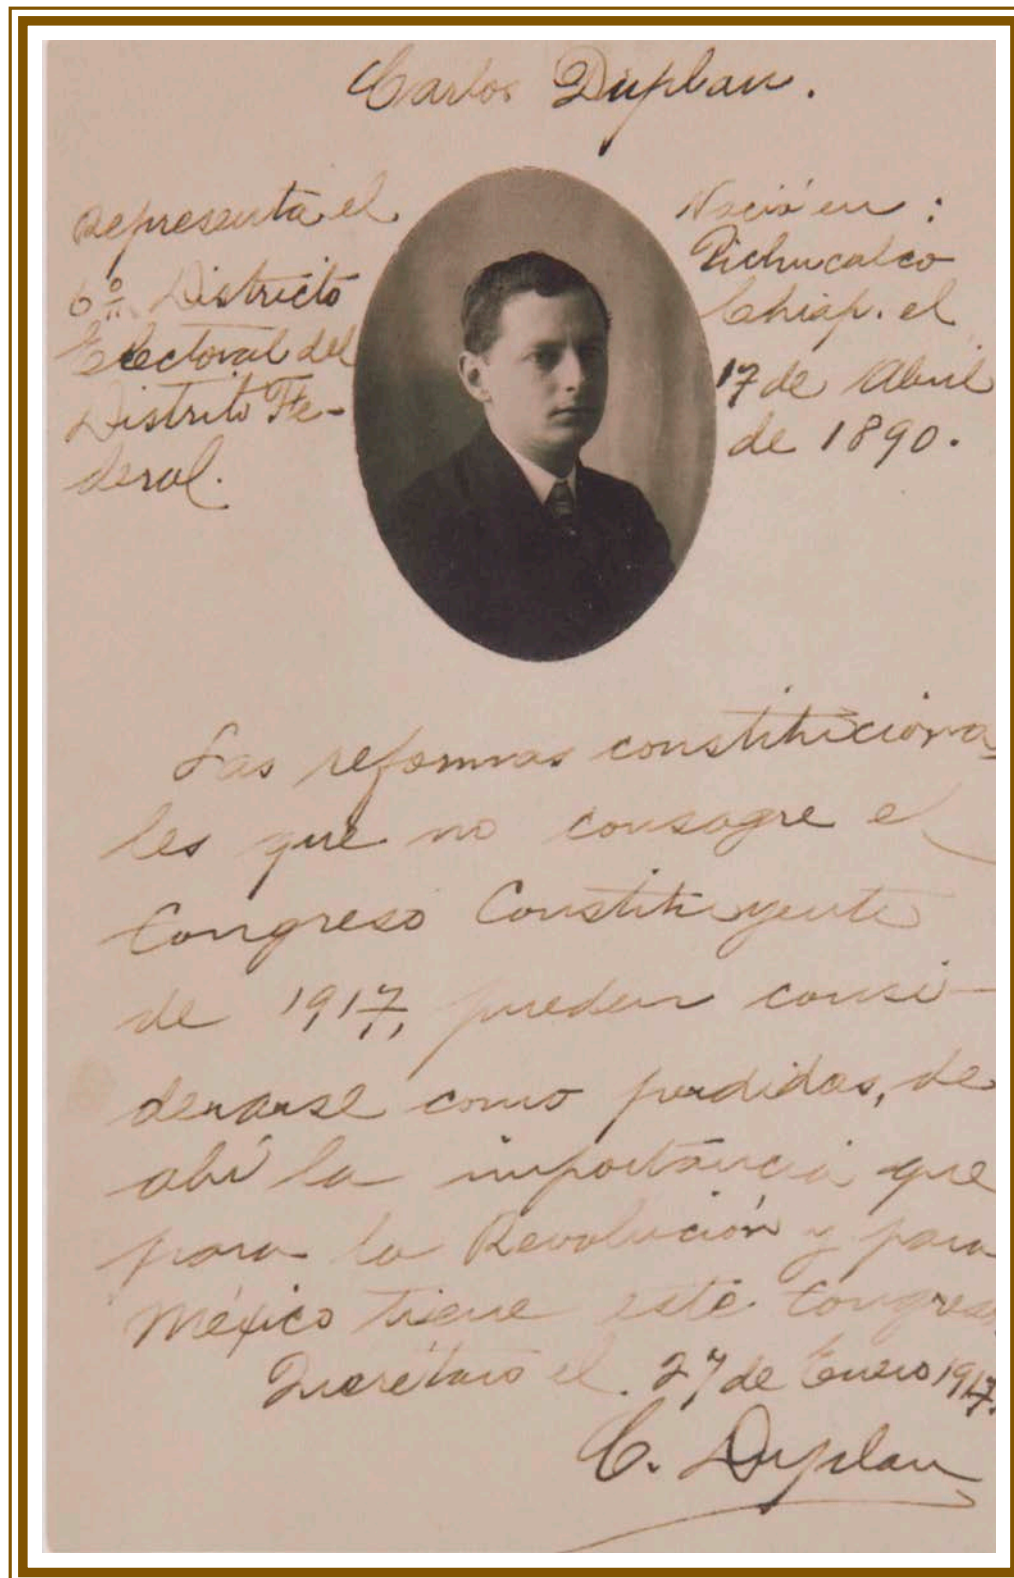 Carlos Duplan.
Representa el
6º Districto
Electoral del
Distrito Fe-
deral.
Nació en :
Pichucalco
Chiap. el
17 de Abril
de 1890.
Las reformas constituciona
les que no consagre el
Congreso Constituyente
de 1917, pueden consi-
derarse como perdidas, de
ahí la importancia que
para la Revolución y para
México tiene este Congreso
Querétaro el. 27 de Enero 1917.
C. Duplan